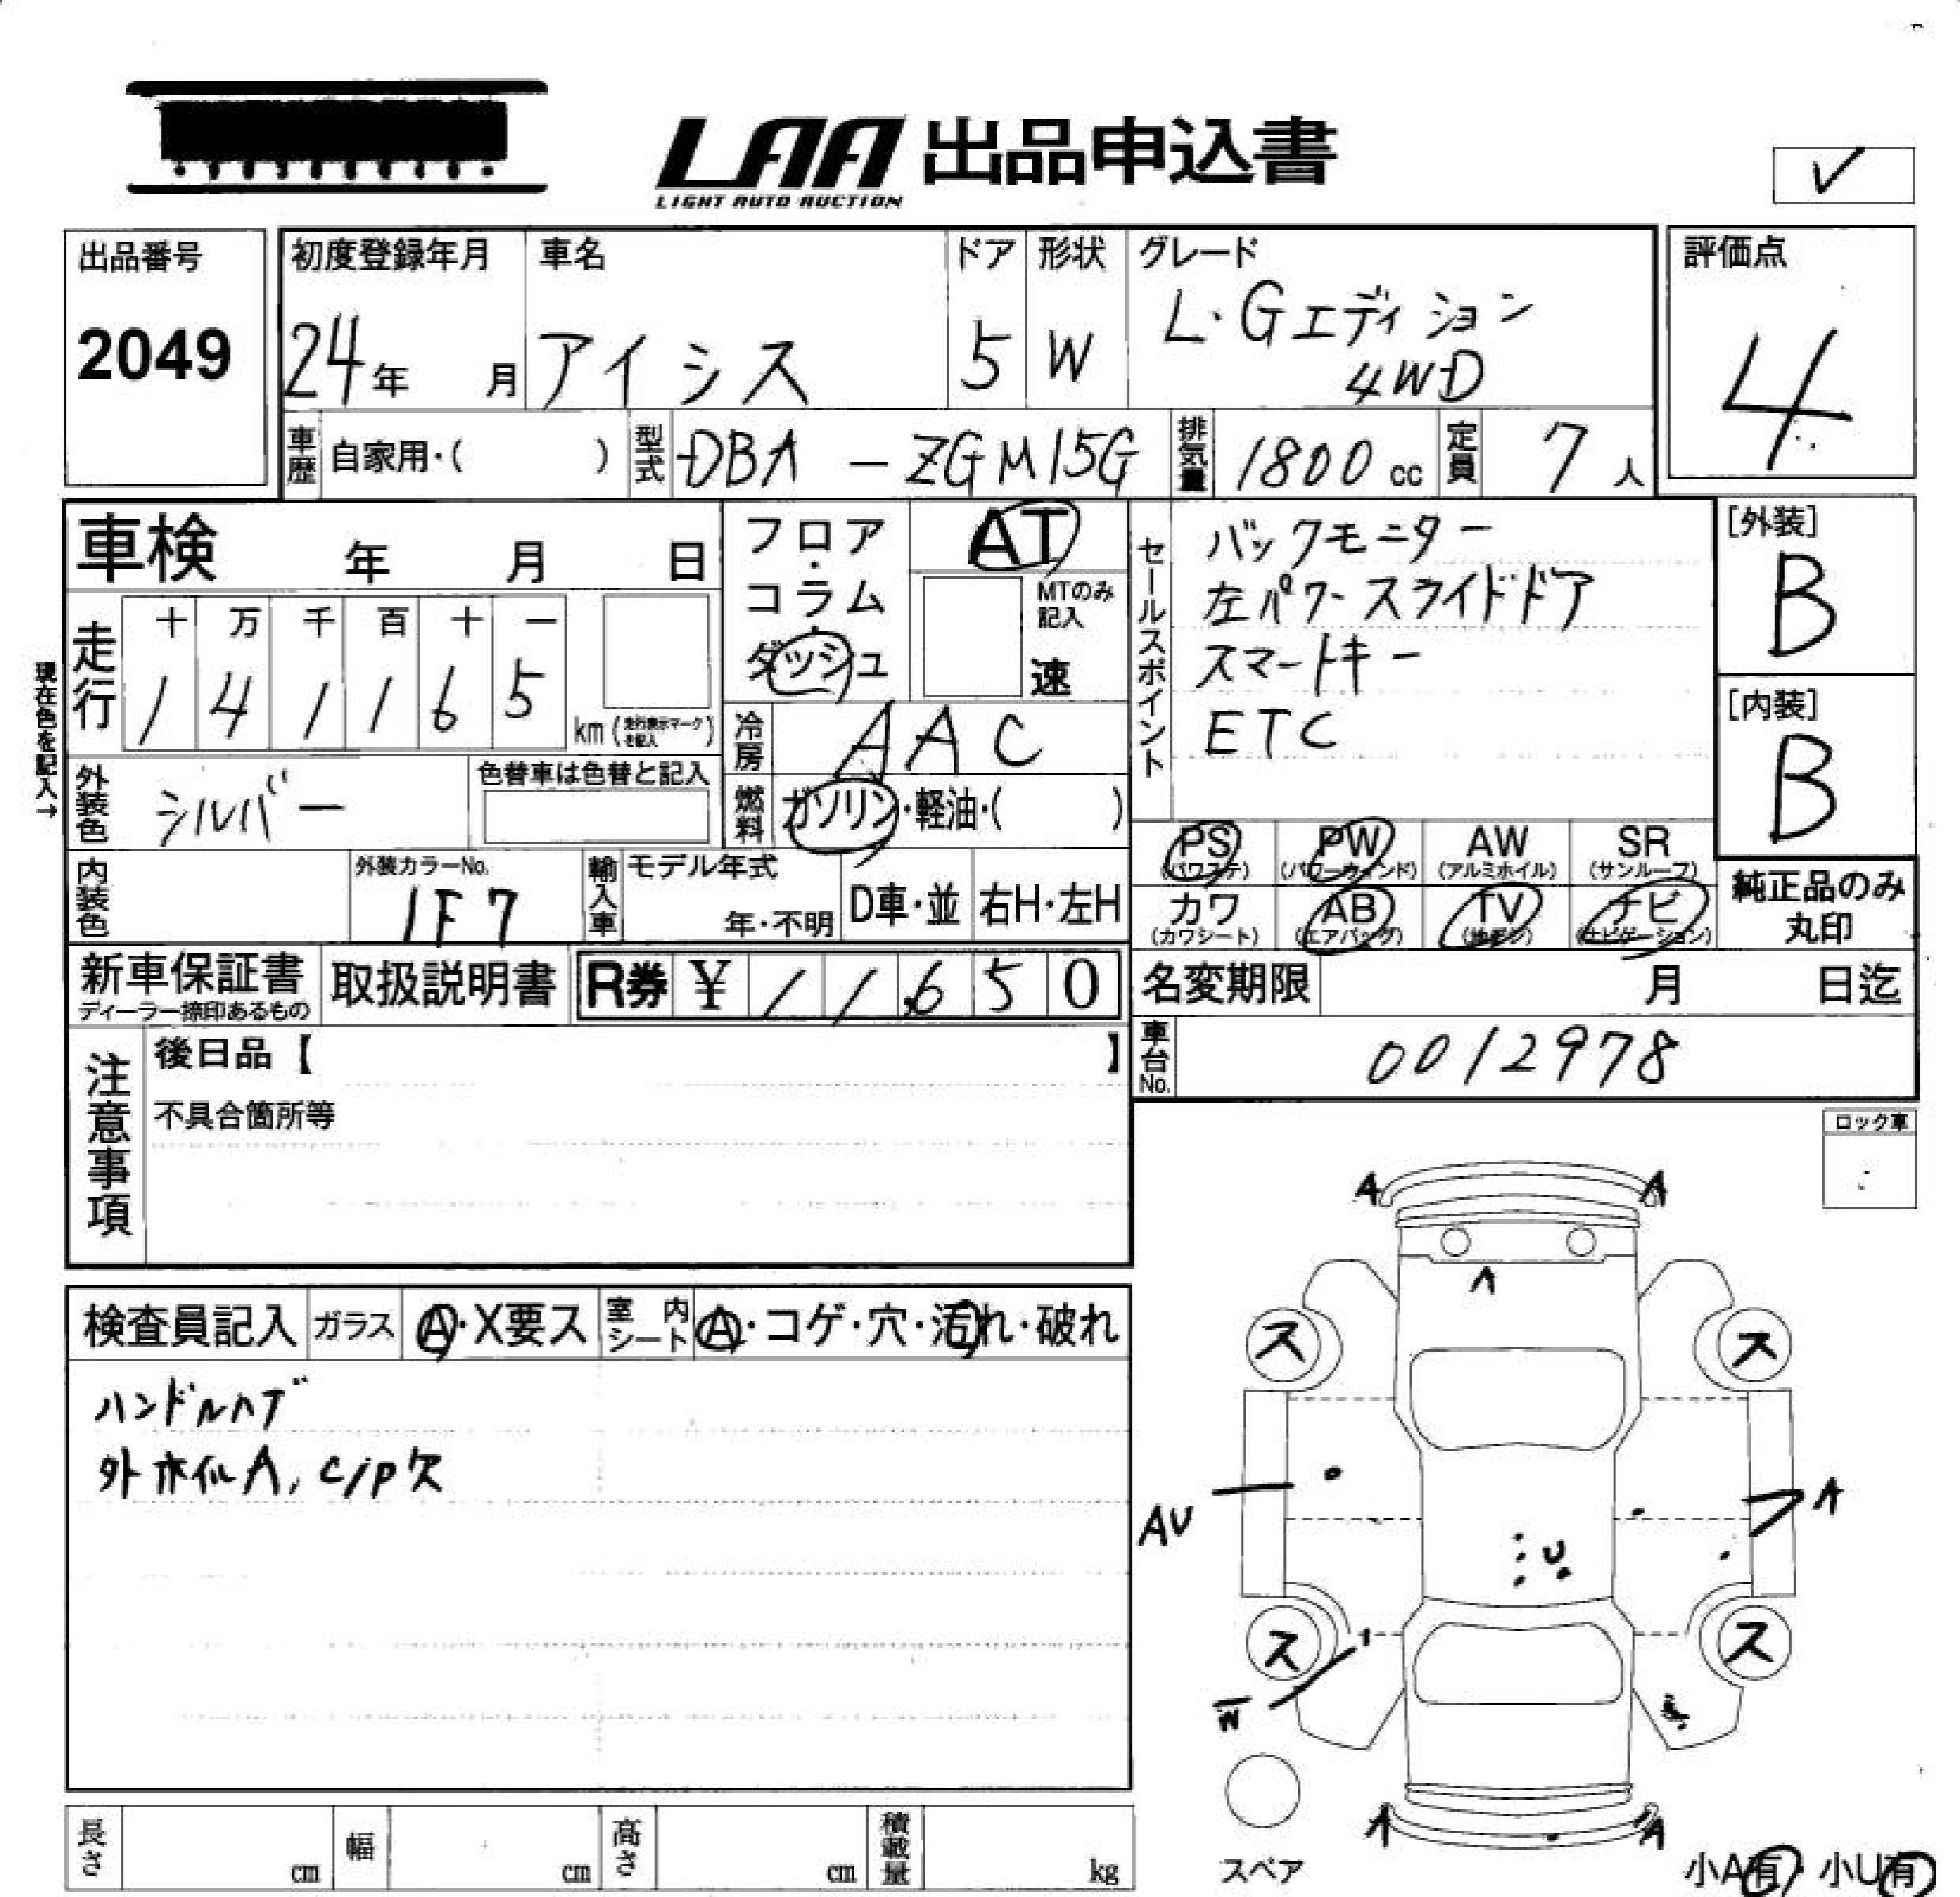 LAA 出品申込書
LIGHT AUTO AUCTION
✓
出品番号
2049
初度登録年月
24年 月
車名
アイシス
ドア
5
形状
W
グレード
L・Gエディション
4WD
評価点
4
車歴 自家用・( )
型式 DBA－ZGM15G
排気量 1800 cc
定員 7 人
車検 年 月 日
現在色を記入→
走行
十 万 千 百 十 一
1 4 1 1 6 5
km (走行表示マークを記入)
フロア・コラム・ダッシュ
AT
MTのみ記入
速
冷房 AAC
燃料 ガソリン・軽油・( )
セールスポイント
バックモニター
左パワースライドドア
スマートキー
ETC
[外装]
B
[内装]
B
外装色 シルバー
色替車は色替と記入
内装色
外装カラーNo.
1F7
輸入車
モデル年式
年・不明
D車・並
右H・左H
PS
(パワステ)
PW
(パワーウィンド)
AW
(アルミホイル)
SR
(サンルーフ)
カワ
(カワシート)
AB
(エアバッグ)
TV
(地デジ)
ナビ
(ナビゲーション)
純正品のみ
丸印
新車保証書
ディーラー捺印あるもの
取扱説明書
R券 ¥ 11,650
名変期限 月 日迄
車台No. 0012978
注意事項
後日品【 】
不具合箇所等
ロック車
検査員記入 ガラス A・X要ス 室内シート A・コゲ・穴・汚れ・破れ
ハンドルハゲ
外ホイルA, C/P欠
A A
A
ス ス
AU A
U
ス ス
W
A A
スペア
小A有・小U有
長さ cm
幅 cm
高さ cm
積載量 kg